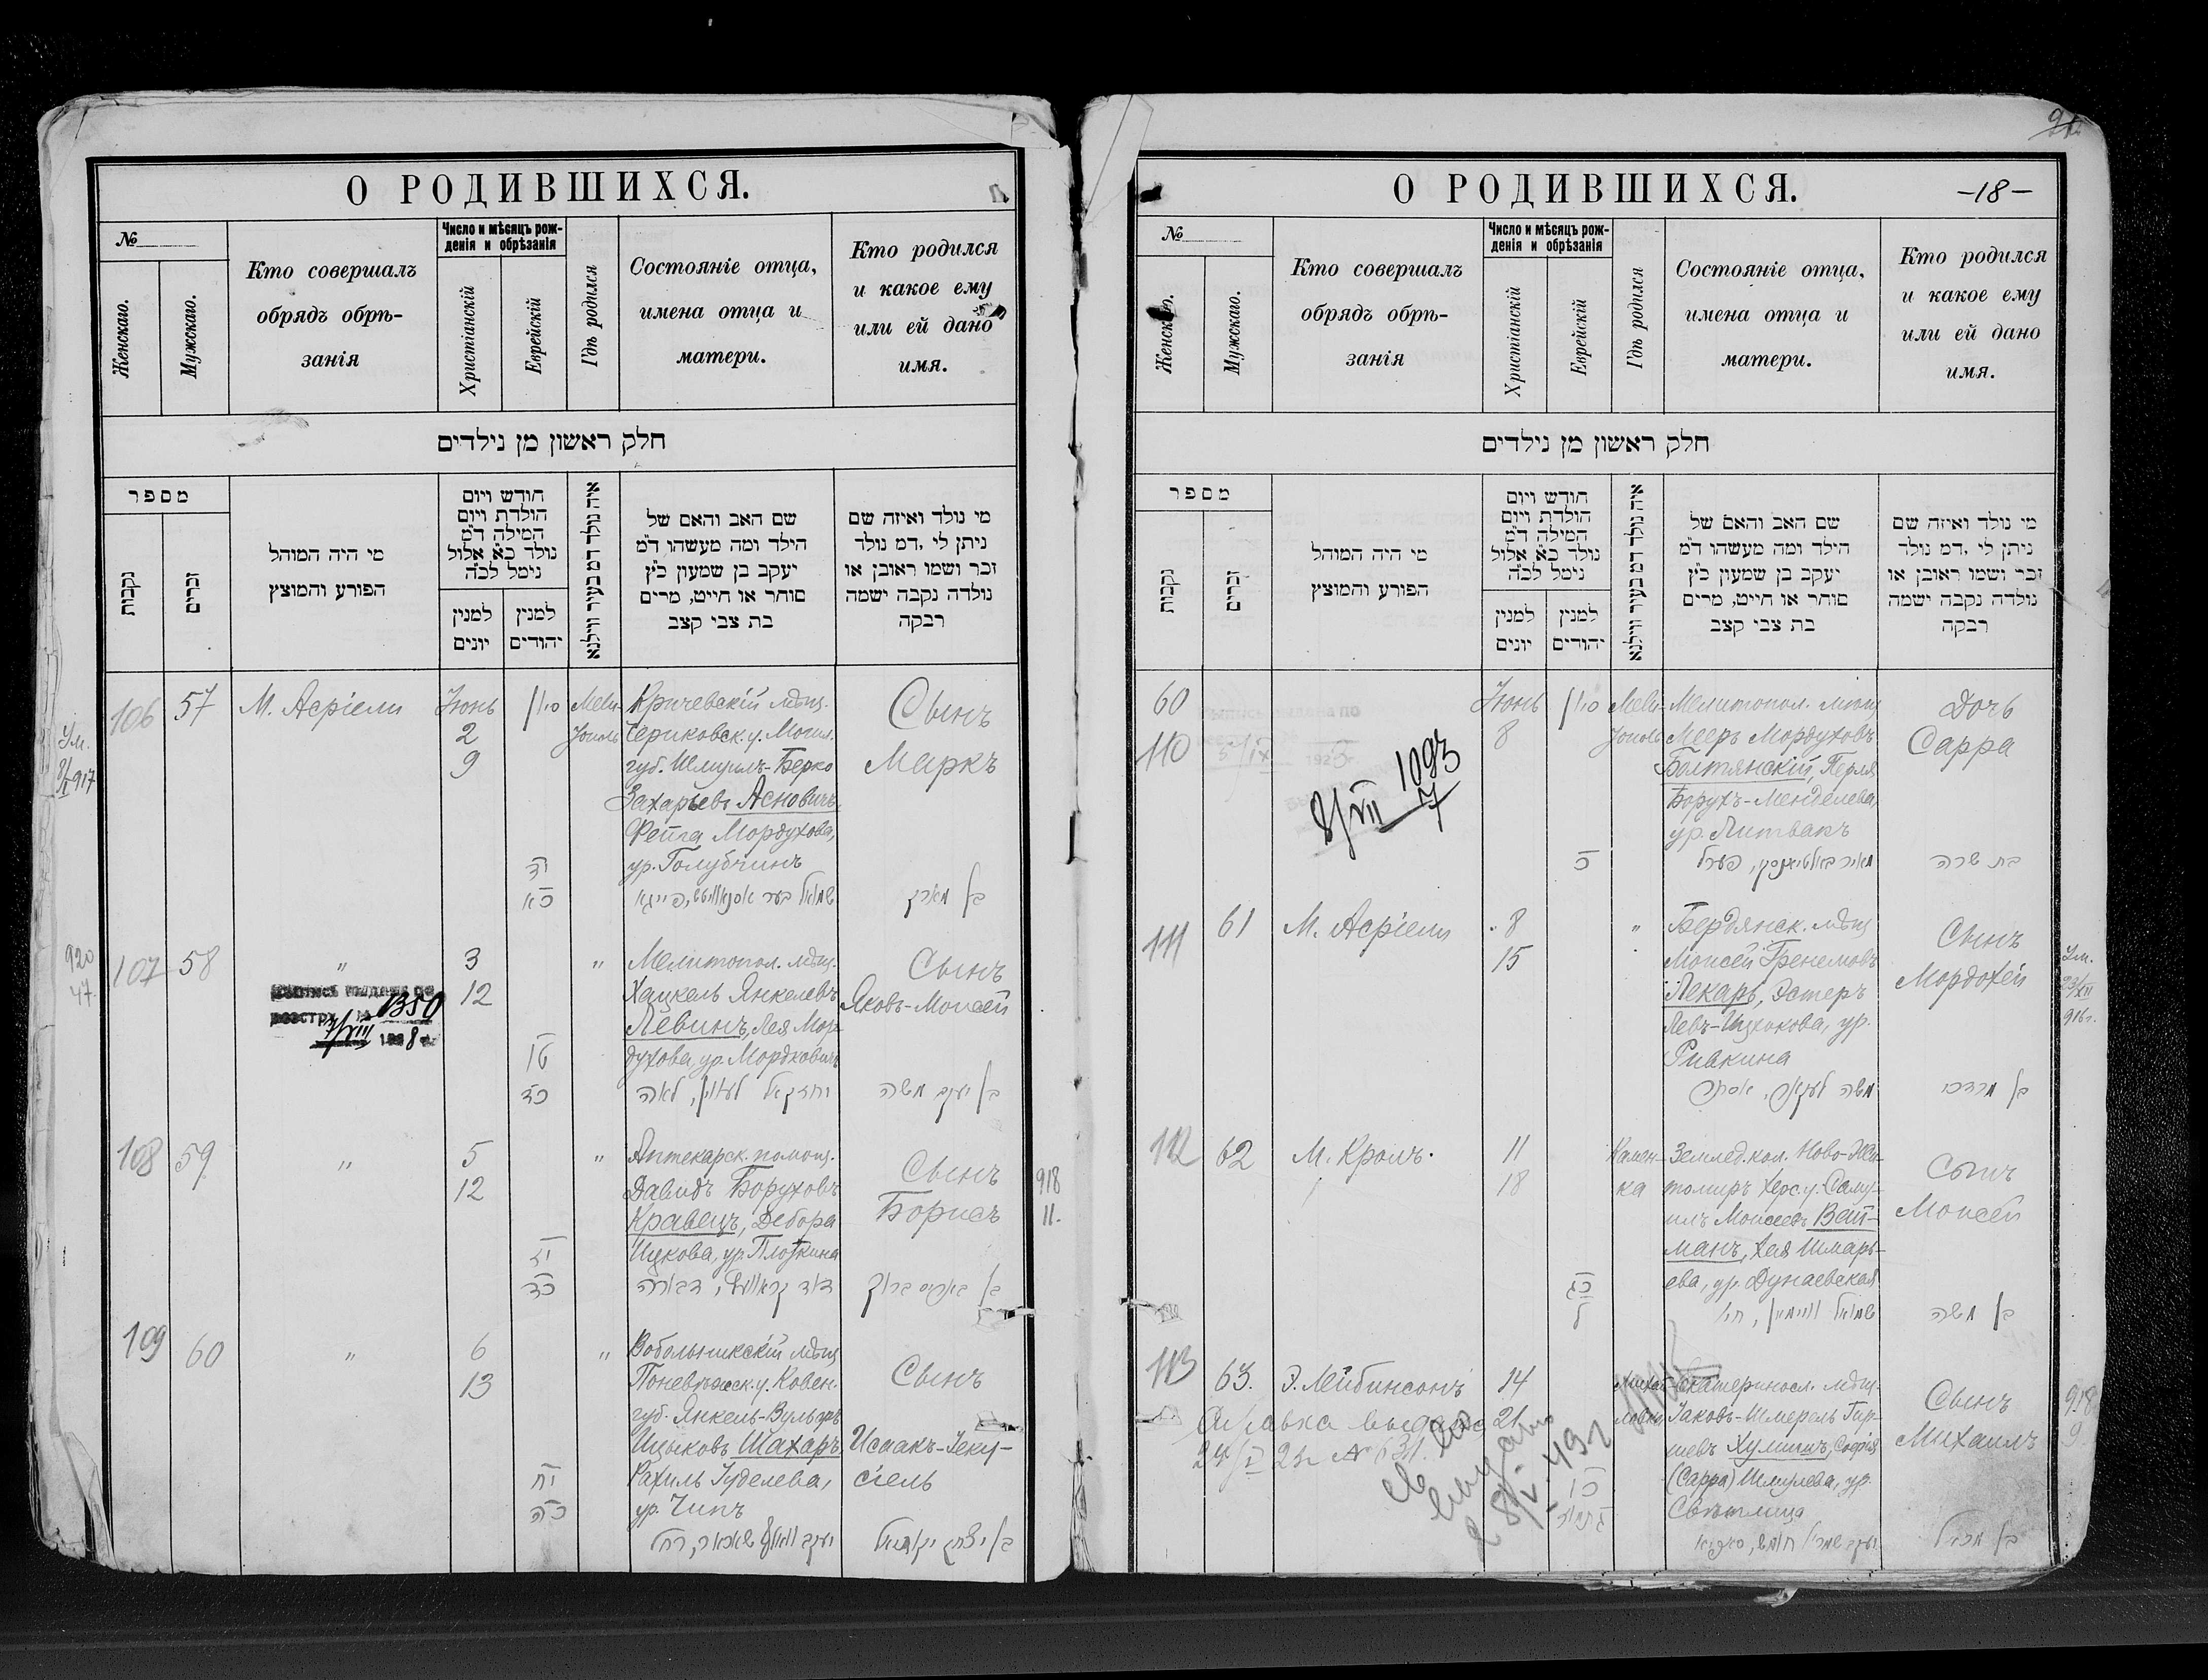 О РОДИВШИХСЯ.
№
Женскаго.
Мужскаго.
Кто совершалъ
обрядъ обрѣ-
занія
Число и мѣсяцъ рож-
денія и обрѣзанія
Христіанскій
Еврейскій
Гдѣ родился
Состояніе отца,
имена отца и
матери.
Кто родился
и какое ему
или ей дано
имя.
חלק ראשון מן נילדים
מספר
נקבות
זכרים
מי היה המוהל
הפורע והמוצץ
חודש ויום
הולדת ויום
המילה ד״מ
נולד כ״א אלול
נימל לכ״ה
למנין
יונים
למנין
יהודים
איה נולד דמ בעיר ווילנא
שם האב והאם של
הילד ומה מעשהו ד״מ
יעקב בן שמעון כ״ץ
סוחר או חייט, מרים
בת צבי קצב
מי נולד ואיזה שם
ניתן לי .דמ נולד
זכר ושמו ראובן או
נולדה נקבה ישמה
רבקה
106
57
М. Асріели
Іюнь
2
9
סיון
יד
כא
Мели-
тополь
Кричевскій мѣщ.
Чериковск. у. Могил.
губ. Шмуилъ-Берко
Захарьевъ Асновичъ,
Фейга Мордухова,
ур. Голубчинъ
Сынъ
Маркъ
Ум.
917
107
58
"
3
12
טו
כד
"
Мелитопол. мѣщ.
Хацкель Янкелевъ
Левинъ, Лея Мор-
духова, ур. Мордковичъ
יחזקאל לעווין, לאה
Сынъ
Яковъ-Моисей
בן יעקב משה
920
47.
реестру 1350
7/VIII 1928 г.
108
59
"
5
12
כד
"
Аптекарск. помощ.
Давидъ Боруховъ
Кравецъ, Дебора
Ицкова, ур. Плоткина
Сынъ
Борисъ
918
11.
109
60
"
6
13
יח
כה
"
Вобольникскій мѣщ.
Поневѣжск. у. Ковен.
губ. Янкель-Вульфъ
Ицыковъ Шахаръ,
Рахиль Іуделева,
ур. Чипъ
Сынъ
Исаакъ-Іеку-
сіель
О РОДИВШИХСЯ.
-18-
№
Женскаго.
Мужскаго.
Кто совершалъ
обрядъ обрѣ-
занія
Число и мѣсяцъ рож-
денія и обрѣзанія
Христіанскій
Еврейскій
Гдѣ родился
Состояніе отца,
имена отца и
матери.
Кто родился
и какое ему
или ей дано
имя.
חלק ראשון מן נילדים
מספר
נקבות
זכרים
מי היה המוהל
הפורע והמוצץ
חודש ויום
הולדת ויום
המילה ד״מ
נולד כ״א אלול
נימל לכ״ה
למנין
יונים
למנין
יהודים
איה נולד דמ בעיר ווילנא
שם האב והאם של
הילד ומה מעשהו ד״מ
יעקב בן שמעון כ״ץ
סוחר או חייט, מרים
בת צבי קצב
מי נולד ואיזה שם
ניתן לי .דמ נולד
זכר ושמו ראובן או
נולדה נקבה ישמה
רבקה
60
110
5/IX 1923 г.
1093
8/VII 7
Іюнь
8
סיון
כ
Мели-
тополь
Мелитопол. мѣщ
Мееръ Мордуховъ
Болтянскій, Перля
Борухъ-Менделева,
ур. Литвакъ
Дочь
Сарра
בת שרה
111
61
М. Асріели
8
15
"
Бердянск. мѣщ
Моисей Гренемовъ
Лекарь, Эстеръ
Левъ-Ицхокова, ур.
Ривкина
Сынъ
Мордохей
בן מרדכי
Ум.
23/XII
916 г.
112
62
М. Кролъ.
11
18
כג
ל
Камен-
ка
Землед. кол. Ново-Жи-
томиръ Херс. у. Саму-
илъ Моисеевъ Вай-
манъ, Хая Шмарь-
ева, ур. Дунаевская
Сынъ
Моисей
בן משה
113
63.
Э. Лейбинсонъ
14
21
כו
Михай-
ловка
Екатериносл. мѣщ.
Іаковъ-Шмерель Гир-
шевъ Хумишъ, Софія
(Сарра) Шмулева, ур.
Свѣтлица
Сынъ
Михаилъ
918
9
Справка выдана